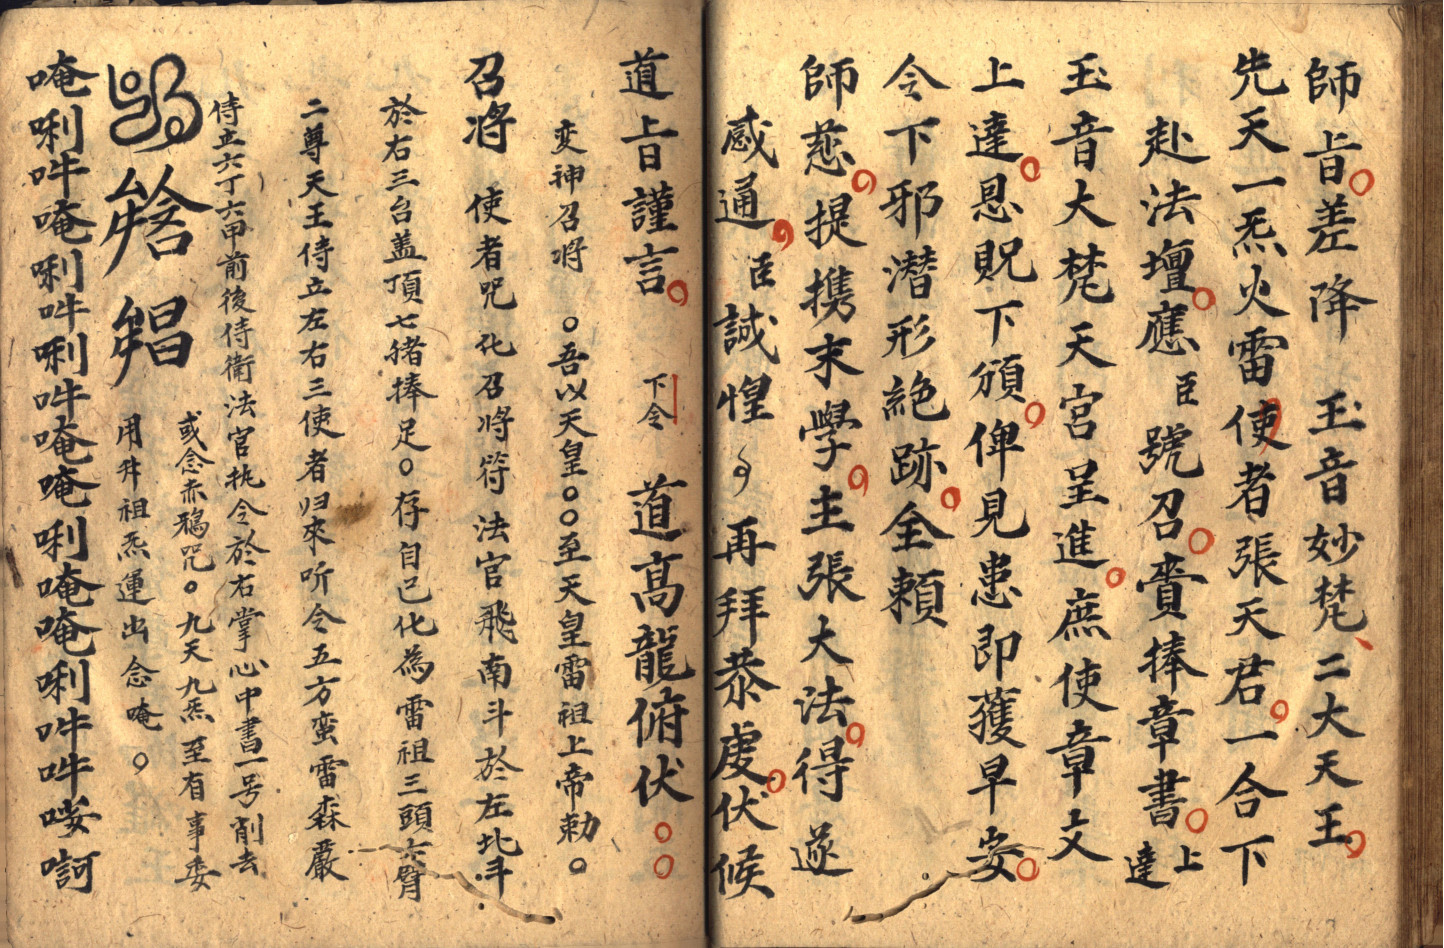 師旨差降 玉音妙梵二大天王
先天一炁火雷使者張天君一合下
赴法壇應臣號召賫捧章書上達
玉音大梵天宫呈進庶使章文
上達恩貺下頒俾見患即獲早安
令下邪潛形絶跡全賴
師慈提携末學主張大法得遂
感通臣誠惶 再拜恭虔伏候
道旨謹言 下令 道高龍俯伏
变神召將 ○吾以天皇○○至天皇雷祖上帝勅○
召将 使者咒 化召將符 法官飛南斗於左北斗
於右三台盖頂七猪捧足○存自己化為雷祖三頭六臂
二尊天王侍立左右三使者归來听令五方蛮雷森嚴
侍立六丁六甲前後侍衛法官执令於右掌心中書一号削去
或念赤鴉咒○九天九炁至有事委
用并祖炁運出念唵
唵唎吽唵唎吽唎吽唵唵唎唵唵唎吽吽㗑訶